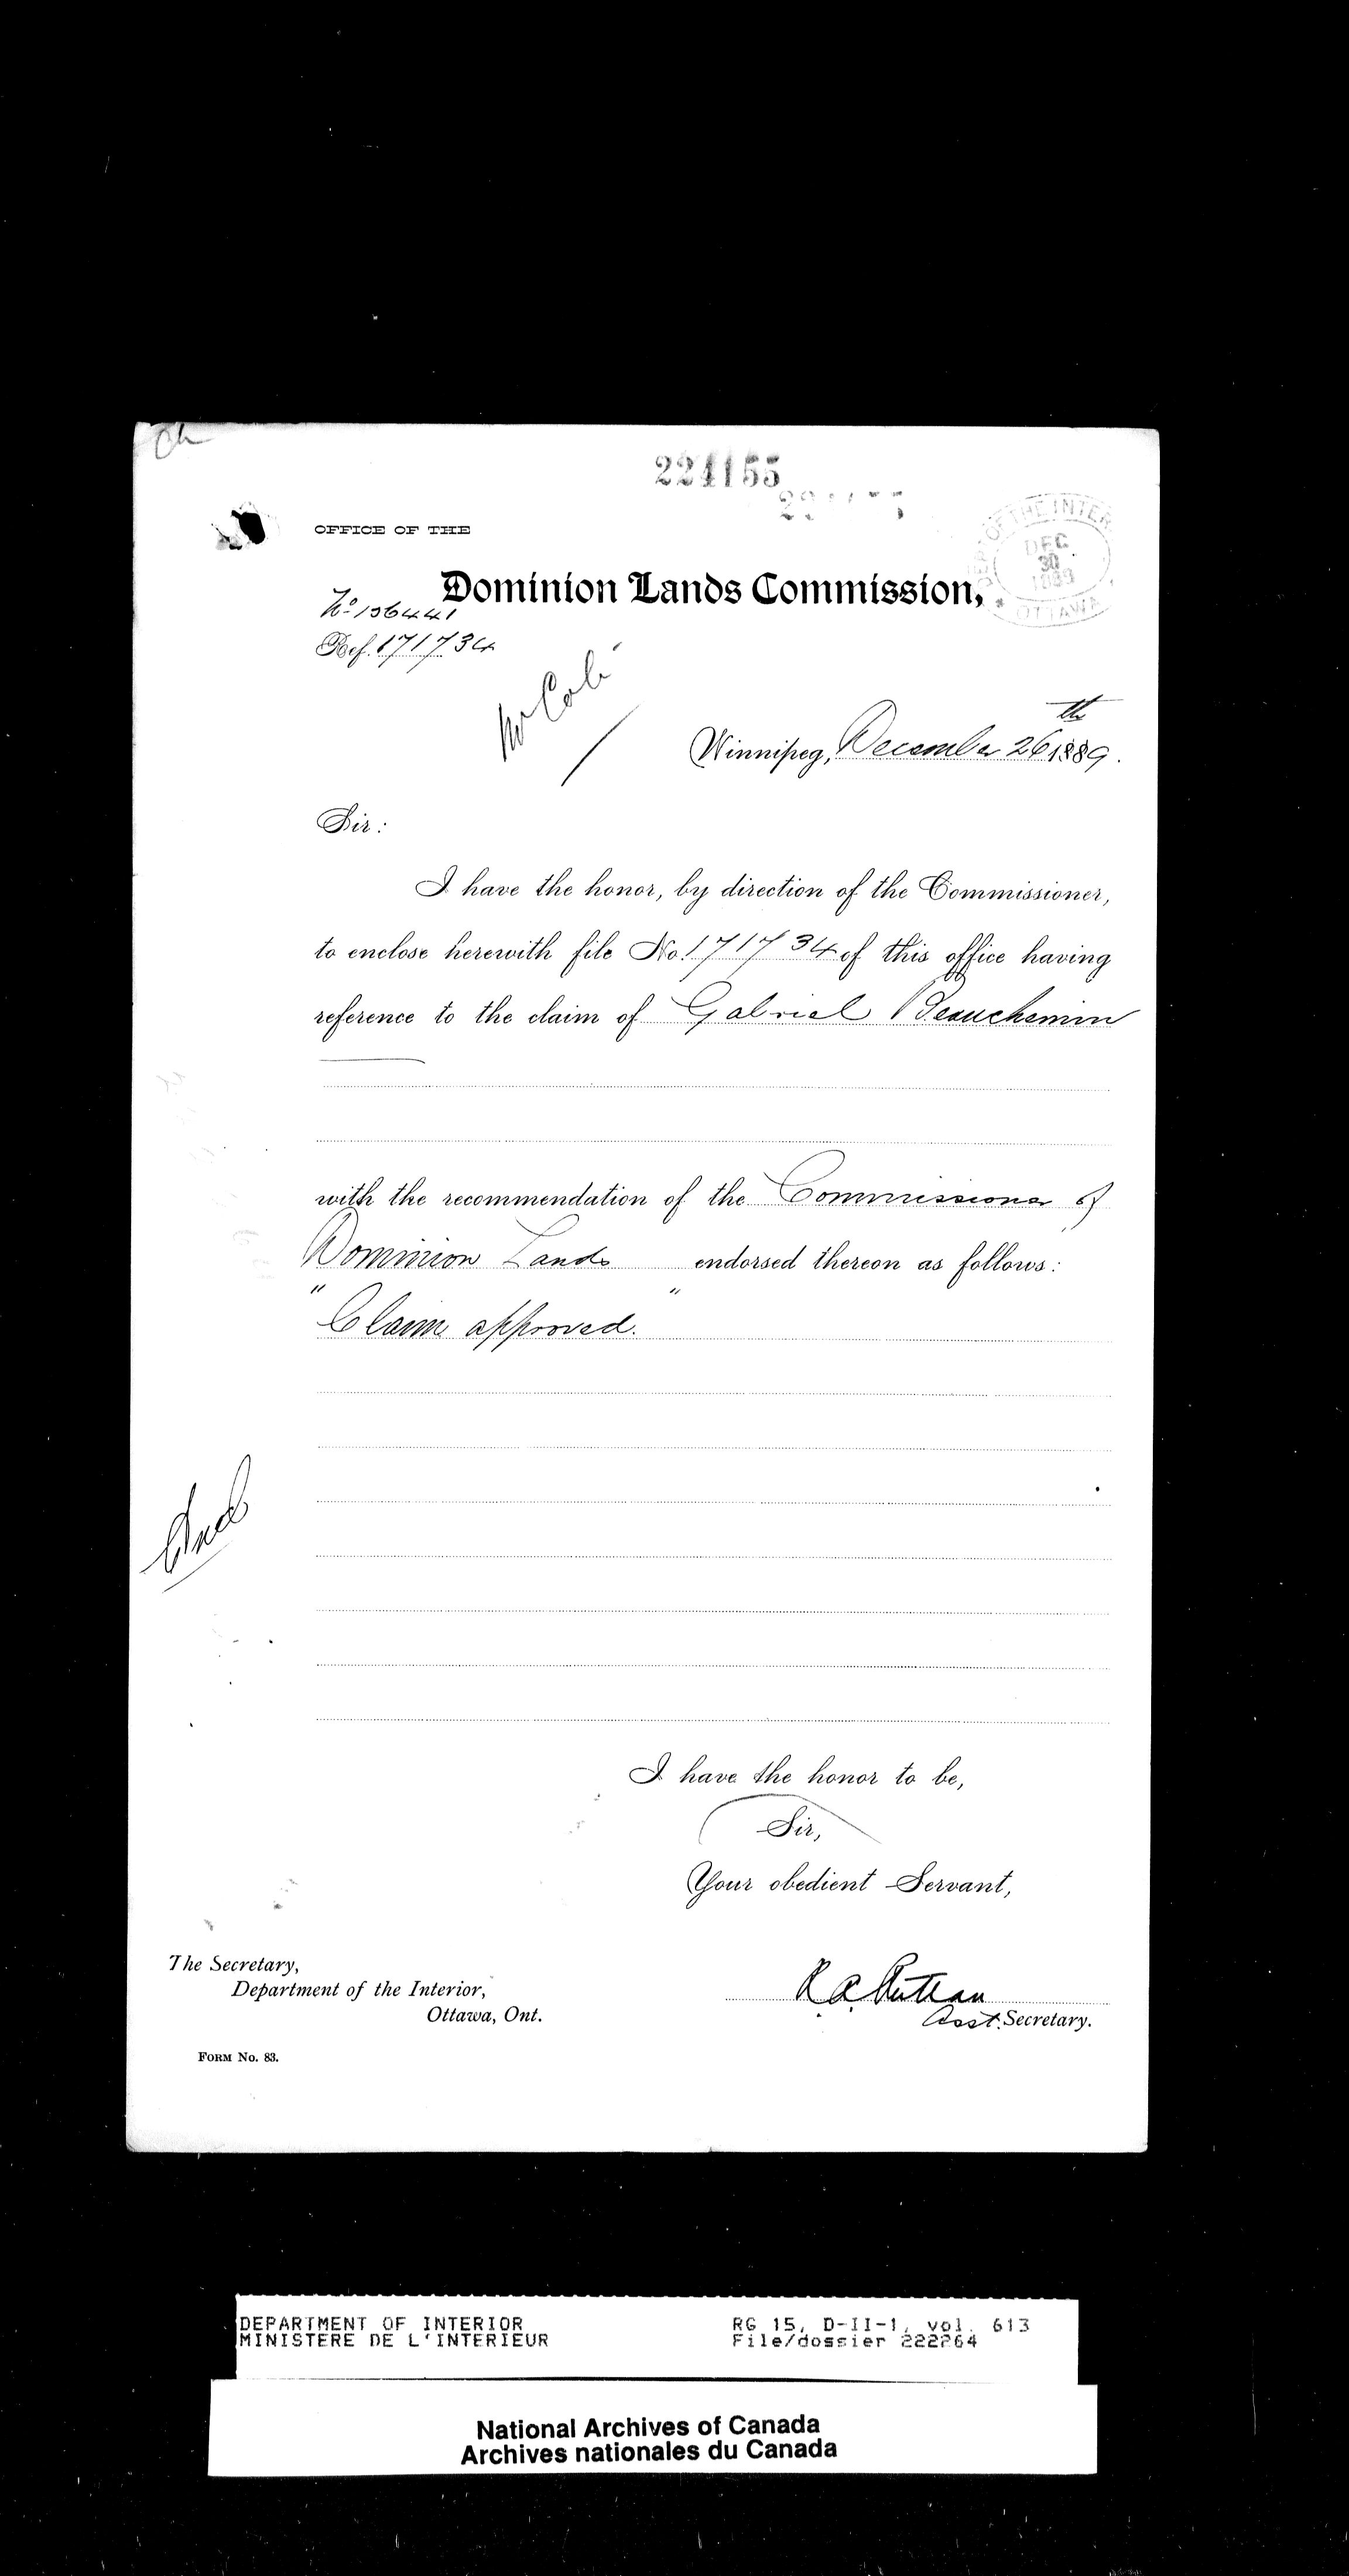 Ch
224155
OFFICE OF THE
DEPT. OF THE INTERIOR
DEC
30
1889
OTTAWA
Dominion Lands Commission,
No 156441
Ref. 171734
Winnipeg, December 26th 1889.
Sir:
I have the honor, by direction of the Commissioner,
to enclose herewith file No. 171734 of this office having
reference to the claim of Gabriel Beauchemin
with the recommendation of the Commissioner of
Dominion Lands endorsed thereon as follows:
"Claim approved."
I have the honor to be,
Sir,
Your obedient Servant,
The Secretary,
Department of the Interior,
Ottawa, Ont.
R. A. Ruttan
Asst. Secretary.
FORM No. 83.
DEPARTMENT OF INTERIOR
MINISTERE DE L'INTERIEUR
RG 15, D-II-1, vol. 613
File/dossier 222264
National Archives of Canada
Archives nationales du Canada